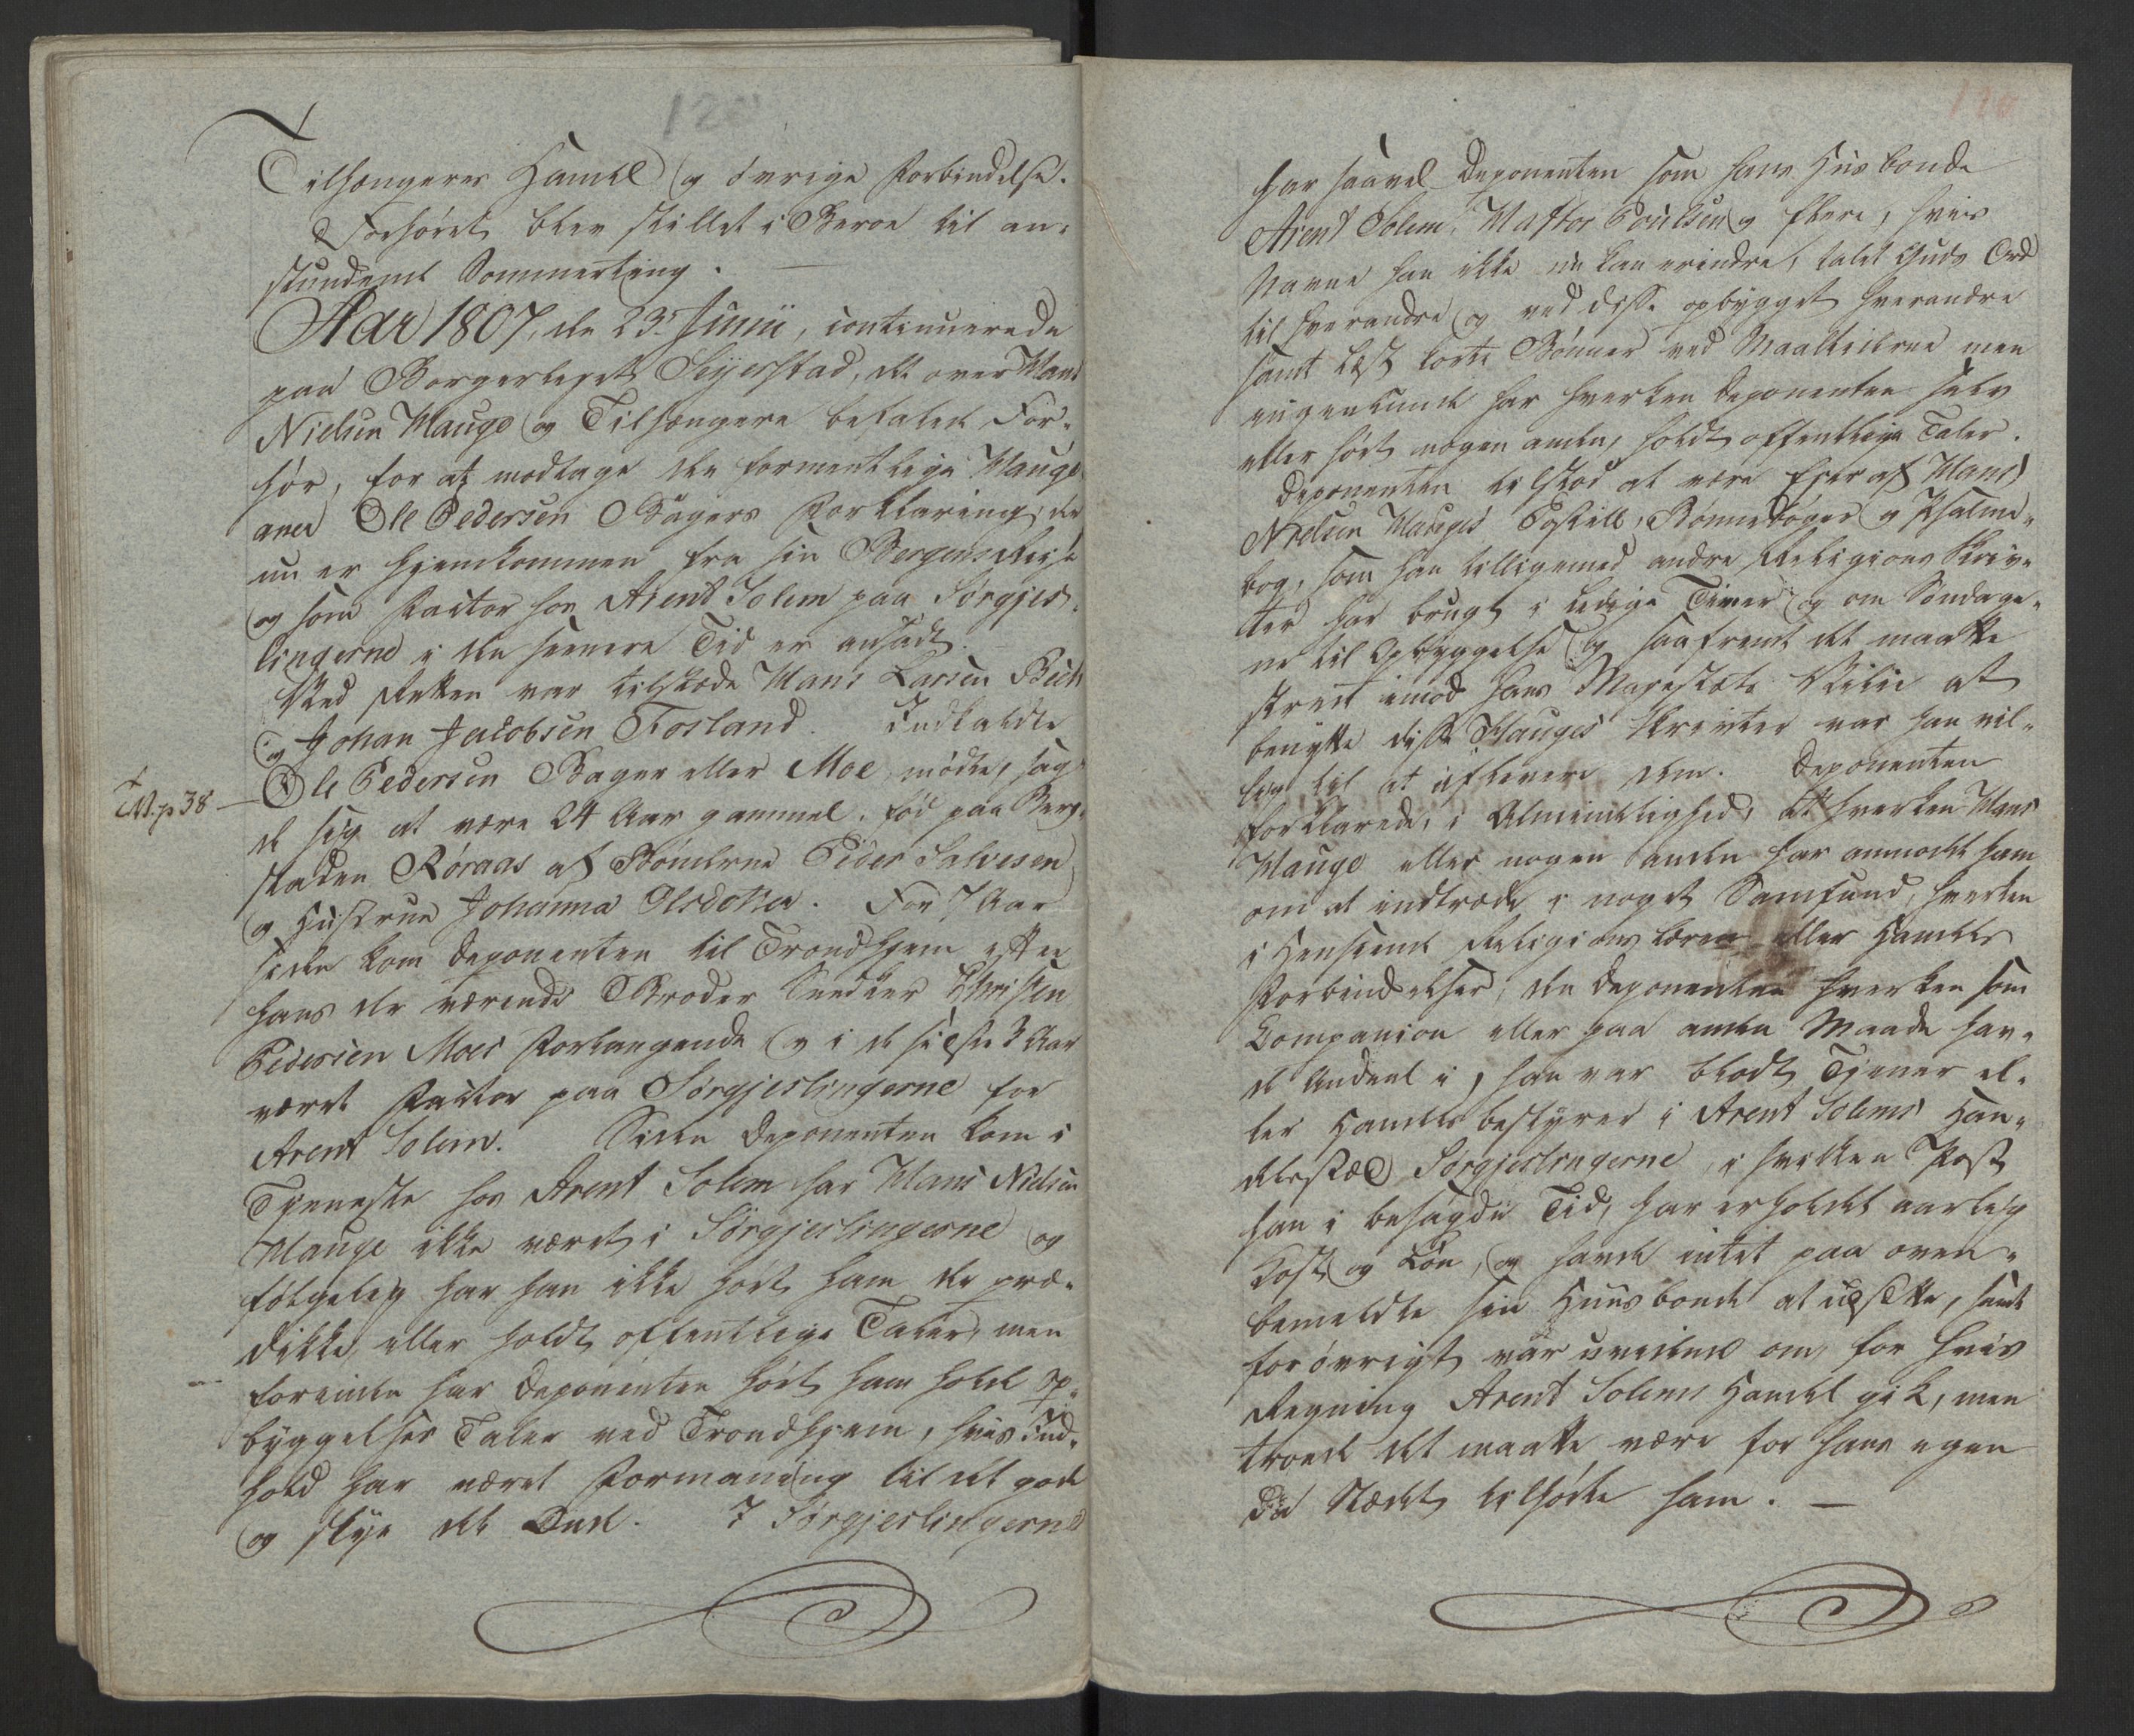 120
Tilhængeres Handel og øvrige Forbindelse.
Forhøret blev stillet i Beroe til an-
stundende Sommerting.
Aar 1807, den 23de Junii, continuerede
paa Borgerleyet Seyerstad, det over Hans
Nielsen Hauge og Tilhængere befalede For-
hør, for at modtage den formentlige Haugi-
aner Ole Pedersen Bagers Forklaring, der
nu er hjemkommen fra sin Bergens Reise
og som Factor hos Arent Solem paa Sørgjes-
lingerne i den senere Tid er ansadt.
Ved Retten var tilstæde Hans Larsen Bech
og Johan Jacobsen Fosland. Indkaldte
Ole Pedersen Bager eller Moe, mødte, sag-
M. p 38
de sig at være 24 Aar gammel, fød paa Berg-
staden Røraas af Bønderne Peder Salvesen
og Hustrue Johanna Olsdotter. For 7 Aar
siden kom Deponenten til Trondhjem efter
hans der værende Broder Snedker Christen
Pedersen Moes Forlangende og i de sidste 3 Aar
været Factor paa Sørgjeslingerne for
Arent Solem. Siden Deponenten kom i
Tjeneste hos Arent Solem har Hans Nielsen
Hauge ikke været i Sørgjeslingerne og
følgelig har han ikke hørt ham der præ-
dikke, eller holdt offentlige Taler, men
forinden har Deponenten hørt ham holde Op-
byggelses Taler ved Trondhjem, hvis Ind-
hold har været Formaning til det gode
og skye det Onde. I Sørgjeslingerne
120
har saavel Deponenten som hans Husbonde
Arent Solem, Mattor Poulsen og flere, hvis
Navne han ikke nu kan erindre, talet Guds Ord
til hverandre og ved disse opbygget hverandre
samt læst korte Bønner ved Maaltiderne men
ingenlunde har hverken Deponenten selv
eller hørt nogen anden, holdt offentlige Taler.
Deponenten tilstod at være Eyer af Hans
Nielsen Hauges Postill, Bønnebøger og Psalme-
bog, som han tilligemed andre Religions Skriv-
ter har brugt i ledige Timer og om Søndage-
ne til Opbyggelse og saafremt det maatte
stride imod Hans Majestæts Villie at
benytte disse Hauges Skrivter var han vil-
lig til at aflevere dem. Deponenten
forklarede, i Almindelighed, at hverken Hans
Hauge eller nogen anden har anmodet ham
om at indtræde i noget Samfund, hverken
i Henseende Religions læren eller Handels
Forbindelser, den Deponenten hverken som
Companion eller paa anden Maade hav-
de Andeel i, han var blodt Tjener el-
ler Handels bestyrer i Arent Solems Han-
delsstæd Sørgjeslingerne, i hvilken Post
han i besagde Tid, har erholdet aarlig
Kost og Løn, og havde intet paa oven-
bemeldte sin Huusbonde at udsætte, samt
forøvrigt var uvidende om, for hvis
Regning Arent Solems Handel gik, men
troede det maatte være for hans egen
da Stædet tilhørte ham.